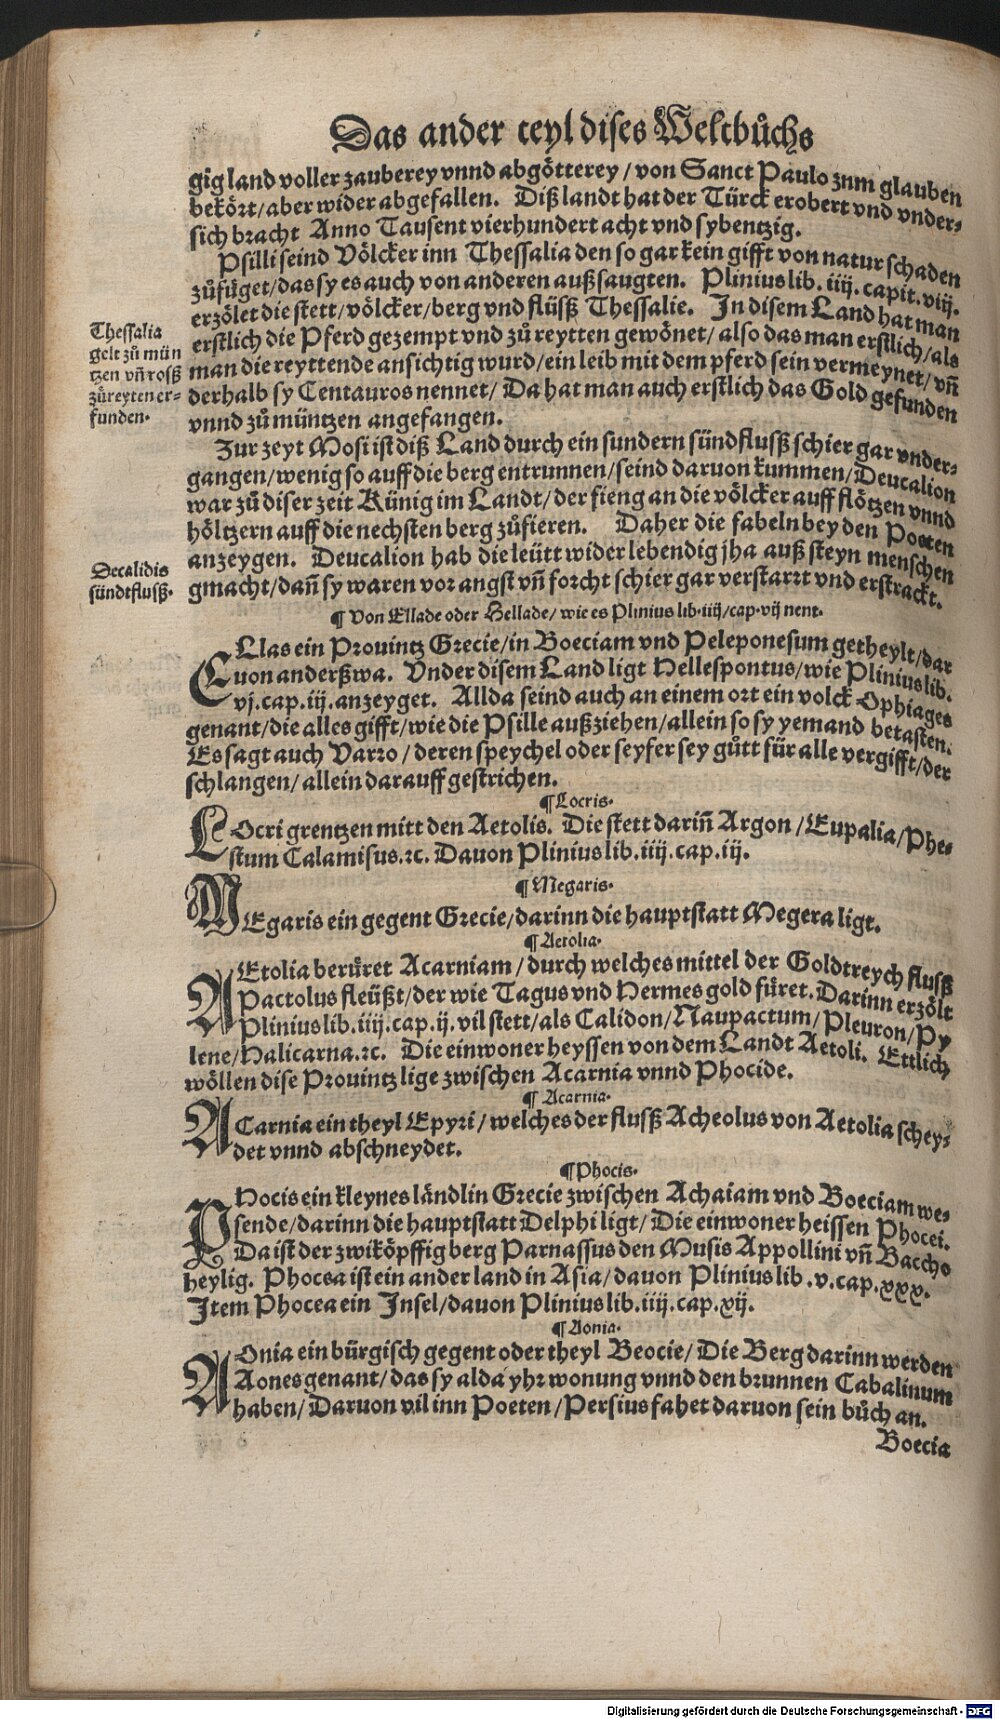 Das ander teyl dises Weltbůchs
gig land voller zauberey vnnd abgötterey / von Sanct Paulo znm glauben
bekört / aber wider abgefallen. Diß landt hat der Türck erobert vnd vnder-
sich bracht Anno Tausent vierhundert acht vnd sybentzig.
Psilli seind Völcker inn Thessalia den so gar kein gifft von natur schaden
zůfüget / das sy es auch von anderen außsaugten. Plinius lib. iiij. capit. viij.
erzölet die stett / völcker / berg vnd flüsß Thessalie. In disem Land hat man
erstlich die Pferd gezempt vnd zů reytten gewönet / also das man erstlich / als
man die reyttende ansichtig wurd / ein leib mit dem pferd sein vermeynet / vñ
derhalb sy Centauros nennet / Da hat man auch erstlich das Gold gefunden
vnnd zů müntzen angefangen.
Thessalia
gelt zů mün
tzen vñ rosß
zůreyten er-
funden.
Zur zeyt Mosi ist diß Land durch ein sundern sündflusß schier gar vnder-
gangen / wenig so auff die berg entrunnen / seind daruon kummen / Deucalion
war zů diser zeit Künig im Landt / der fieng an die völcker auff flötzen vnnd
höltzern auff die nechsten berg zůfieren. Daher die fabeln bey den Poeten
anzeygen. Deucalion hab die leütt wider lebendig jha auß steyn menschen
gmacht / dañ sy waren vor angst vñ forcht schier gar verstarrt vnd erstrackt.
Decalidis
sündtflusß.
¶ Von Ellade oder Hellade / wie es Plinius lib. iiij / cap. vij nent.
ELlas ein Prouintz Grecie / in Boeciam vnd Peleponesum getheylt / dar
uon anderßwa. Vnder disem Land ligt Hellespontus / wie Plinius lib.
vj. cap. iij. anzeyget. Allda seind auch an einem ort ein volck Ophiages
genant / die alles gifft / wie die Psille außziehen / allein so sy yemand betasten.
Es sagt auch Varro / deren speychel oder seyfer sey gůtt für alle vergifft / der
schlangen / allein darauff gestrichen.
¶ Locris.
LOcri grentzen mitt den Aetolis. Die stett dariñ Argon / Eupalia / Phe-
stum Calamisus. ⁊c. Dauon Plinius lib. iiij. cap. iij.
¶ Megaris.
MEgaris ein gegent Grecie / darinn die hauptstatt Megera ligt.
¶ Aetolia.
AEtolia berüret Acarniam / durch welches mittel der Goldtreych flusß
Pactolus fleüßt / der wie Tagus vnd Hermes gold füret. Darinn erzölt
Plinius lib. iiij. cap. ij. vil stett / als Calidon / Naupactum / Pleuron / Py
lene / Halicarna. ⁊c. Die einwoner heyssen von dem Landt Aetoli. Ettlich
wöllen dise Prouintz lige zwischen Acarnia vnnd Phocide.
¶ Acarnia.
ACarnia ein theyl Epyri / welches der flusß Acheolus von Aetolia schey-
det vnnd abschneydet.
¶ Phocis.
PHocis ein kleynes ländlin Grecie zwischen Achaiam vnd Boeciam we-
sende / darinn die hauptstatt Delphi ligt / Die einwoner heissen Phocei.
Da ist der zwiköpffig berg Parnassus den Musis Appollini vñ Baccho
heylig. Phocea ist ein ander land in Asia / dauon Plinius lib. v. cap. xxx.
Item Phocea ein Insel / dauon Plinius lib. iiij. cap. xij.
¶ Aonia.
AOnia ein bürgisch gegent oder theyl Beocie / Die Berg darinn werden
Aones genant / das sy alda yhr wonung vnnd den brunnen Cabalinum
haben / Daruon vil inn Poeten / Persius fahet daruon sein bůch an.
Boecia
Digitalisierung gefördert durch die Deutsche Forschungsgemeinschaft - DFG